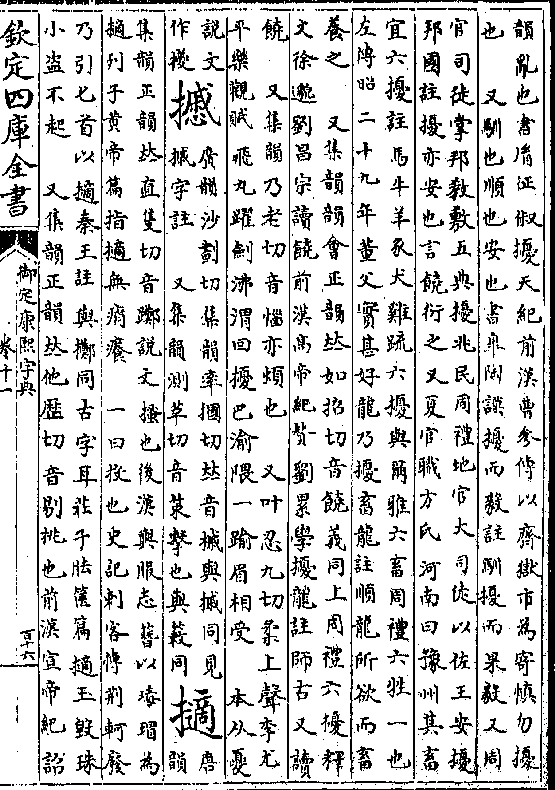 韻亂也書㣧征俶擾天紀前漢曹參傳以齊獄市爲寄愼勿擾
也　又馴也順也安也書臯陶謨擾而毅註馴擾而果毅又周
官司徒掌邦敎敷五典擾兆民周禮地官大司徒以佐王安擾
邦國註擾亦安也言饒衍之又夏官職方氏河南曰豫州其畜
宜六擾註馬牛羊豕犬雞疏六擾與爾雅六畜周禮六牲一也
左傳昭二十九年董父實甚好龍乃擾畜龍註順龍所欲而畜
養之　又集韻韻會正韻𠀤如招切音饒義同上周禮六擾釋
文徐邈劉昌宗讀饒前漢高帝紀贊劉累學擾龍註師古又讀
饒　又集韻乃老切音惱亦煩也　又叶忍九切柔上聲李尤
平樂觀賦飛丸躍劍沸渭回擾巴渝隈一踰肩相受　本从憂
說文作擾　摵　廣韻沙劃切集韻率摑切𠀤音摵與摵同見
摵字註　又集韻測革切音策擊也與敇同　擿　唐韻
集韻正韻𠀤直隻切音躑說文搔也後漢輿服志簪以瑇瑁爲
擿列子黃帝篇指擿無痟癢　一曰投也史記刺客傳荆軻廢
乃引匕首以擿秦王註與擲同古字耳莊子胠篋篇擿玉毀珠
小盜不起　又集韻正韻𠀤他歷切音剔挑也前漢宣帝紀詔
欽定四庫全書
御定康熙字典
卷十一
百十六